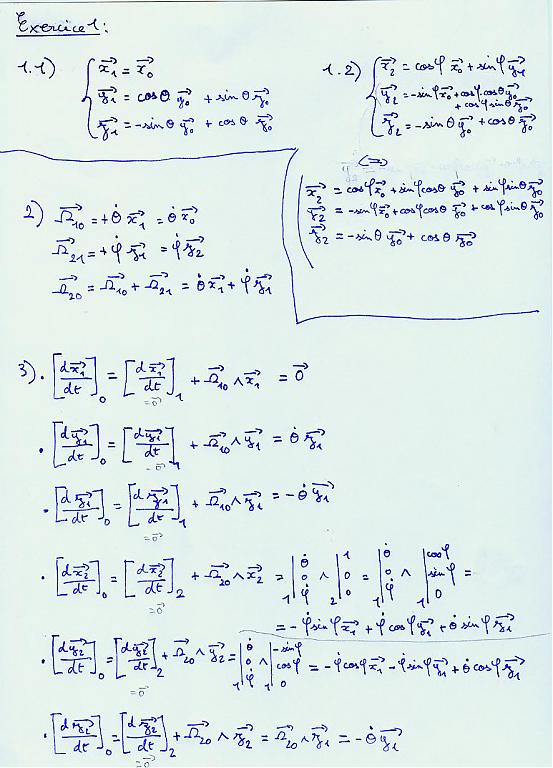 Exercice 1:
1.1) { x₁→ = x₀→
y₁→ = cosθ y₀→ + sinθ z₀→
z₁→ = -sinθ y₀→ + cosθ z₀→
1.2) { x₂→ = cosφ x₀→ + sinφ y₁→
y₂→ = -sinφ x₀→ + cosφ cosθ y₀→
+ cosφ sinθ z₀→
z₂→ = -sinθ y₀→ + cosθ z₀→
<=>
x₂→ = cosφ x₀→ + sinφ cosθ y₀→ + sinφ sinθ z₀→
y₂→ = -sinφ x₀→ + cosφ cosθ y₀→ + cosφ sinθ z₀→
z₂→ = -sinθ y₀→ + cosθ z₀→
2) Ω₁₀→ = +θ̇ x₁→ = θ̇ x₀→
Ω₂₁→ = +φ̇ z₁→ = φ̇ z₂→
Ω₂₀→ = Ω₁₀→ + Ω₂₁→ = θ̇ x₁→ + φ̇ z₁→
3) • [dx₁→/dt]₀ = [dx₁→/dt]₁ + Ω₁₀→ ∧ x₁→ = 0→
= 0→
• [dy₁→/dt]₀ = [dy₁→/dt]₁ + Ω₁₀→ ∧ y₁→ = θ̇ z₁→
= 0→
• [dz₁→/dt]₀ = [dz₁→/dt]₁ + Ω₁₀→ ∧ z₁→ = -θ̇ y₁→
= 0→
• [dx₂→/dt]₀ = [dx₂→/dt]₂ + Ω₂₀→ ∧ x₂→ = ₁|θ̇ 0 φ̇ ∧ ₂|1 0 0 = ₁|θ̇ 0 φ̇ ∧ ₁|cosφ sinφ 0 =
= 0→
= -φ̇ sinφ x₁→ + φ̇ cosφ y₁→ + θ̇ sinφ z₁→
• [dy₂→/dt]₀ = [dy₂→/dt]₂ + Ω₂₀→ ∧ y₂→ = ₁|θ̇ 0 φ̇ ∧ ₁|-sinφ cosφ 0 = -φ̇ cosφ x₁→ - φ̇ sinφ y₁→ + θ̇ cosφ z₁→
= 0→
• [dz₂→/dt]₀ = [dz₂→/dt]₂ + Ω₂₀→ ∧ z₂→ = Ω₂₀→ ∧ z₁→ = -θ̇ y₁→
= 0→